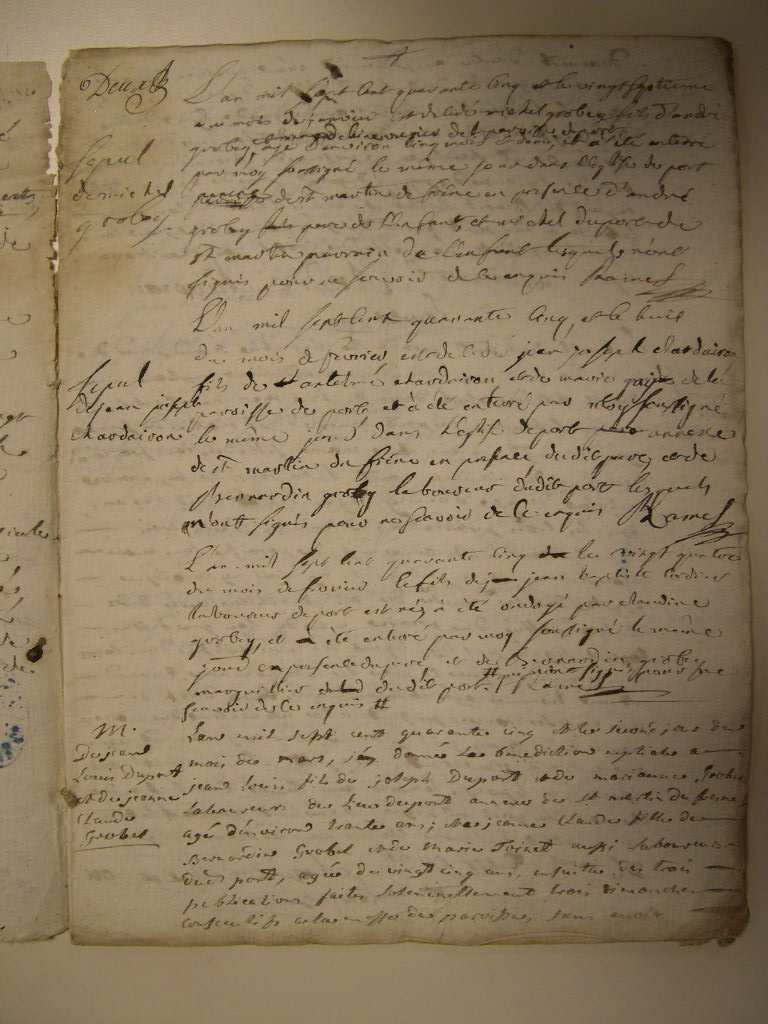 Deux
L'an mil sept cent quarante cinq et le vingt septieme
du mois de janvier est decedé michel grobey fils d'andré
grobey, agé d'environ cinq mois et demi, et a été enterré
Sepul
de michel
grobey
par moy soussigné le même jour dans l'eglise de port
annexe de st martin de frêne en presence d'andré
grobey pere de l'enfant, et michel duport de
st martin parrain de l'enfant lesquels n'ont
signés pour ne scavoir de ce enquis Ramel
L'an mil sept cent quarante cinq, et le huit
du mois de fevrier est decedé jean joseph chardaison
Sepul
de jean joseph
chardaison
fils de antelmé chardaison et de marie de la
paroisse de port, et a été enterré par moy soussigné
le même jour dans l'eglise de port annexe
de st martin du frêne en presence dudit pere, et de
Bernardin grobey laboureur dudit port lesquels
n'ont signés pour ne scavoir de ce enquis Ramel
L'an mil sept cent quarante cinq le vingt quatre
du mois de fevrier le fils de jean baptiste
laboureur de port est né, a été ondoyé par claudine
grobey, et a été enterré par moy soussigné le même
jour en presence du pere, et de Bernardin grobey
marguillier dudit port # Ramel
# pour ne
scavoir de ce enquis #
M.
De jean
Louis Duport
et de jeanne
Claude
Grobel
L'an mil sept cent quarante cinq et le jour du
mois de mars, j'ay donnée la bénédiction nuptiale a
jean louis fils de joseph Duport et de marianne Grobel
Laboureurs du lieu de port annexe de St martin du fresne
agé d'environ trante ans; et a jeanne Claude fille de
Bernardin Grobel et de Marie Toinet aussi laboureurs
dudit port, agée de vingt cinq ans, ensuite des trois
publications faites solemnellement trois dimanches
consecutifs a la messe de paroisse, sans avoir